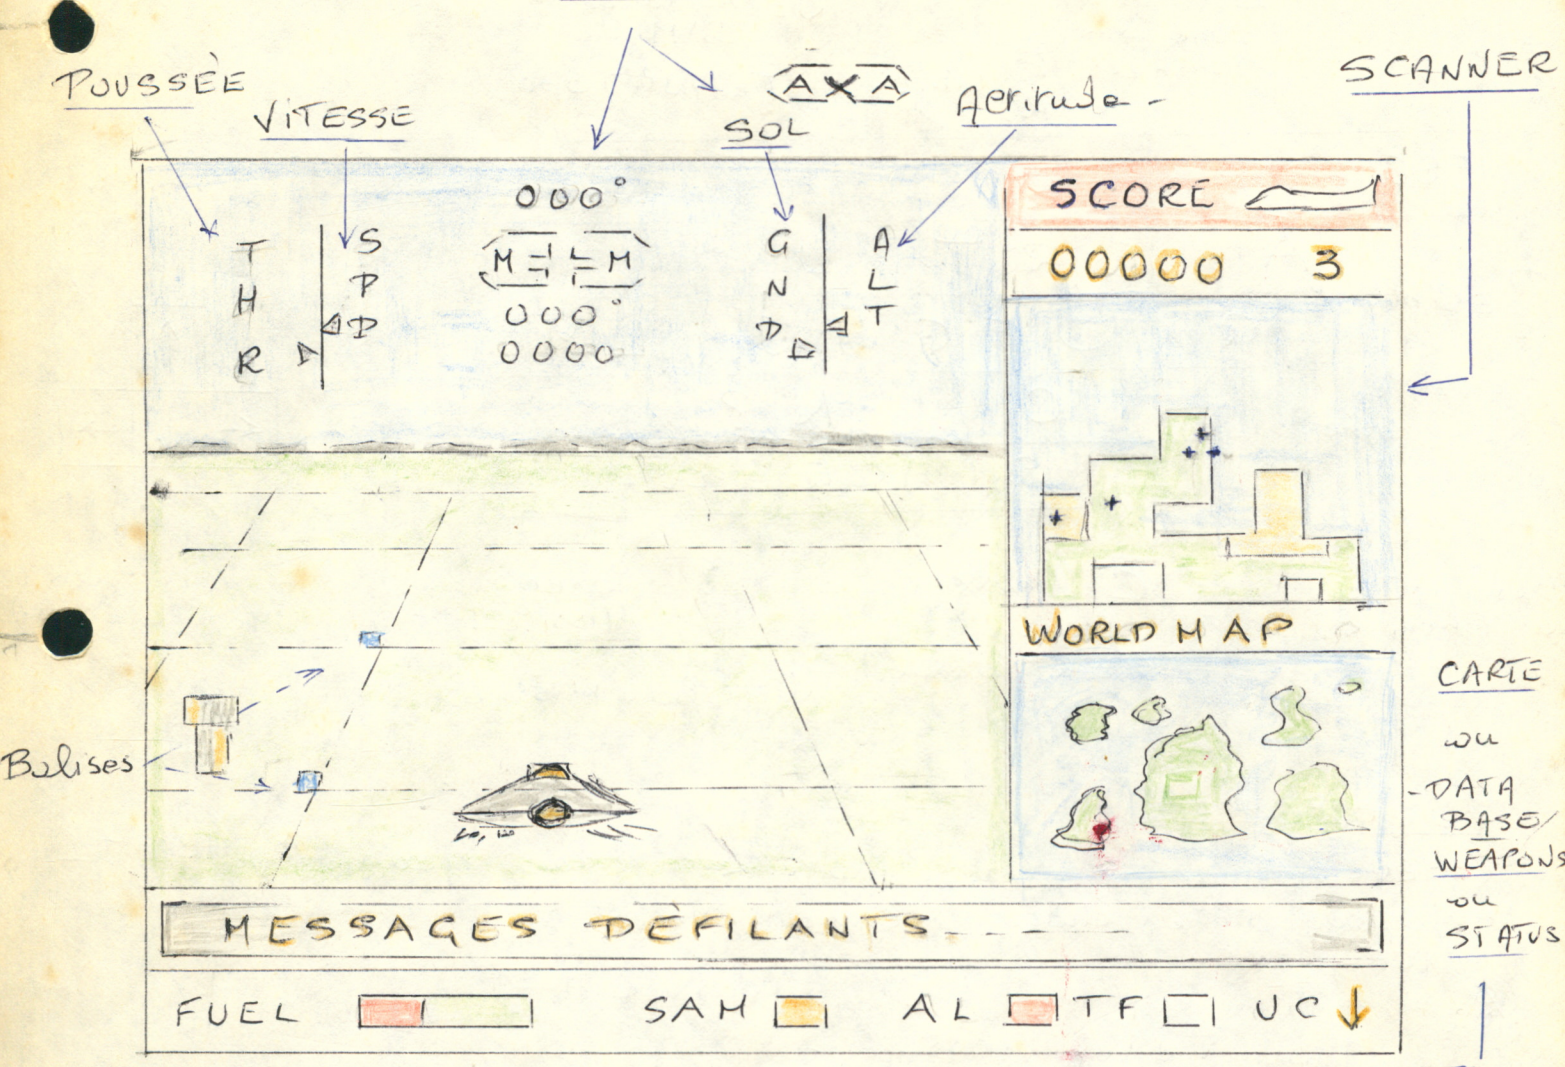 POUSSÉE
VITESSE
AXA
SOL
SCANNER
THR
SPD
000°
000°
0000
GND
ALT
SCORE
00000 3
WORLD MAP
Balises
CARTE
ou
DATA
BASE/
WEAPONS
ou
STATUS
MESSAGES DÉFILANTS----
FUEL SAM AL TF UC